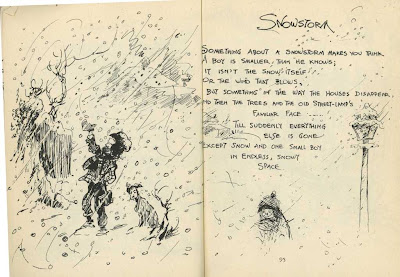 SNOWSTORM
SOMETHING ABOUT A SNOWSTORM MAKES YOU THINK
A BOY IS SMALLER THAN HE KNOWS;
IT ISN'T THE SNOW ITSELF
OR THE WIND THAT BLOWS,
BUT SOMETHING IN THE WAY THE HOUSES DISAPPEAR
AND THEN THE TREES AND THE OLD STREET-LAMP'S
FAMILIAR FACE
TILL SUDDENLY EVERYTHING
ELSE IS GONE
EXCEPT SNOW AND ONE SMALL BOY
IN ENDLESS, SNOWY
SPACE